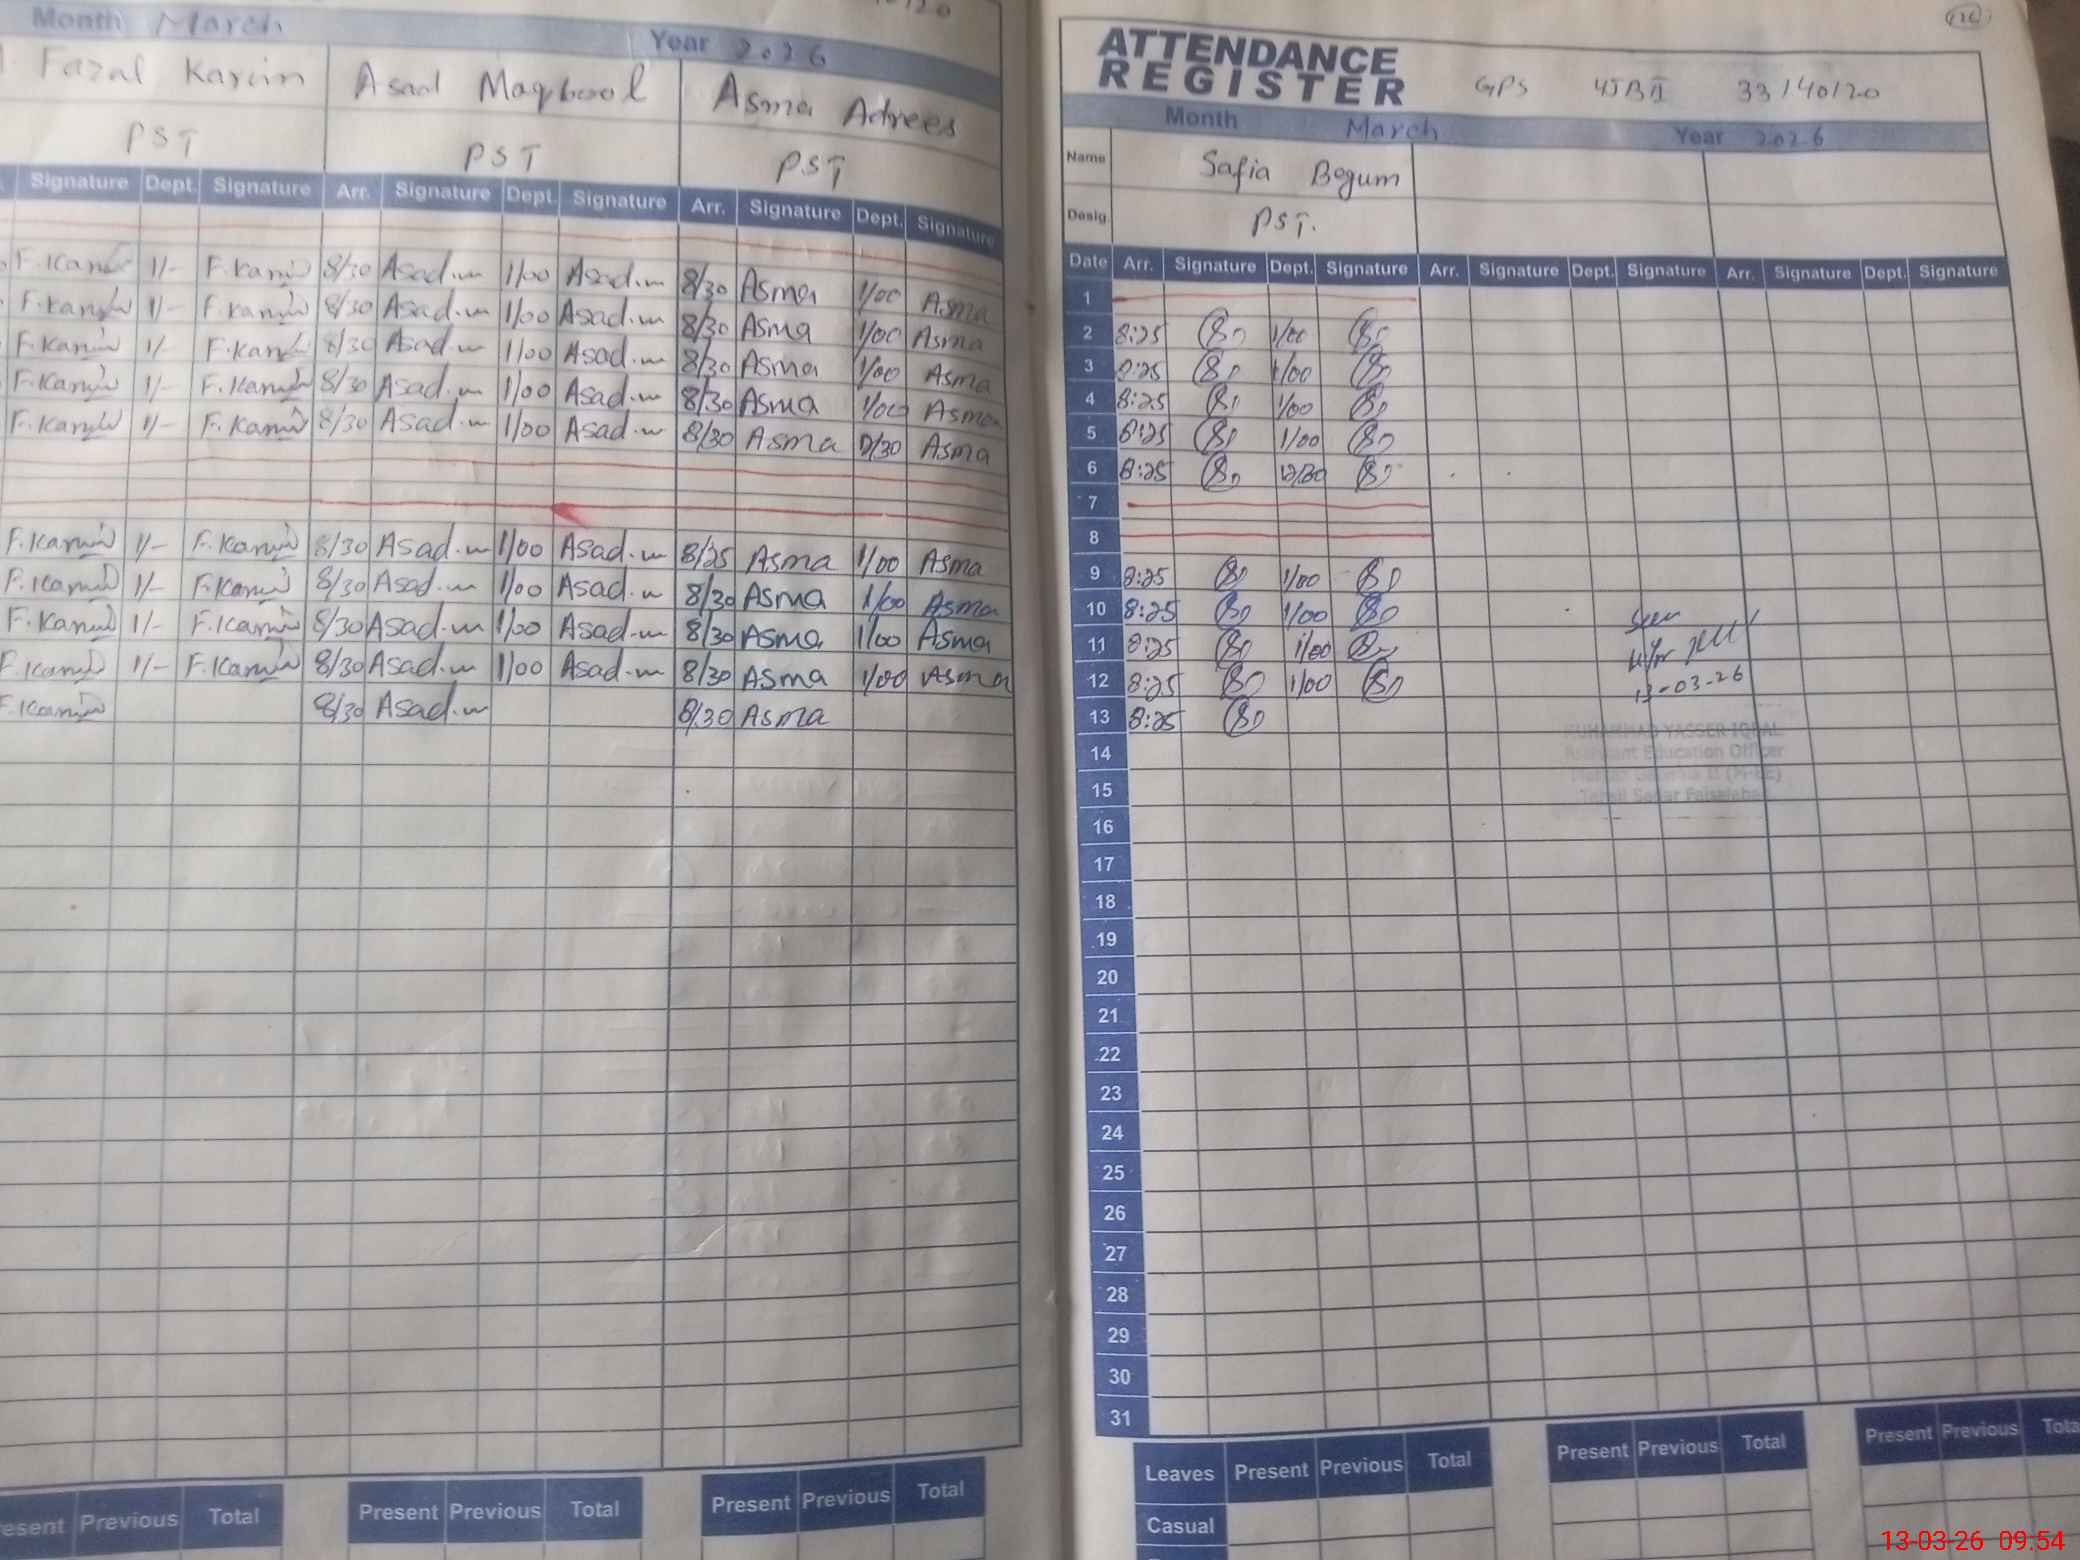 Month March Year 2026
Fazal Karim Asad Maqbool Asma Adrees
PST PST PST
Signature Dept. Signature Arr. Signature Dept. Signature Arr. Signature Dept. Signature
F.Karim 1/- F.Karim 8/30 Asad.m 1/00 Asad.m 8/30 Asma 1/00 Asma
F.Karim 1/- F.Karim 8/30 Asad.m 1/00 Asad.m 8/30 Asma 1/00 Asma
F.Karim 1/- F.Karim 8/30 Asad.m 1/00 Asad.m 8/30 Asma 1/00 Asma
F.Karim 1/- F.Karim 8/30 Asad.m 1/00 Asad.m 8/30 Asma 1/00 Asma
F.Karim 1/- F.Karim 8/30 Asad.m 1/00 Asad.m 8/30 Asma Asma
F.Karim 1/- F.Karim 8/30 Asad.m 1/00 Asad.m 8/25 Asma 1/00 Asma
F.Karim 1/- F.Karim 8/30 Asad.m 1/00 Asad.m 8/30 Asma 1/00 Asma
F.Karim 1/- F.Karim 8/30 Asad.m 1/00 Asad.m 8/30 Asma 1/00 Asma
F.Karim 1/- F.Karim 8/30 Asad.m 1/00 Asad.m 8/30 Asma 1/00 Asma
F.Karim 8/30 Asad.m 8/30 Asma
Present Previous Total Present Previous Total Present Previous Total
ATTENDANCE
REGISTER GPS 4JBII 33/40/20
Month March Year 2026
Name Safia Begum
Desig. PST.
Date Arr. Signature Dept. Signature Arr. Signature Dept. Signature Arr. Signature Dept. Signature
1
2 8:25 1/00
3 8:25 1/00
4 8:25 1/00
5 8:25 1/00
6 8:25 12/30
7
8
9 8:25 1/00
10 8:25 1/00
Seen
11 8:25 1/00
12 8:25 1/00
13-03-26
13 8:25
MUHAMMAD YASSER IQBAL
14
Assistant Education Officer
15
Tehsil Sadar Faisalabad
16
17
18
19
20
21
22
23
24
25
26
27
28
29
30
31
Leaves Present Previous Total Present Previous Total Present Previous Total
Casual
13-03-26 09:54